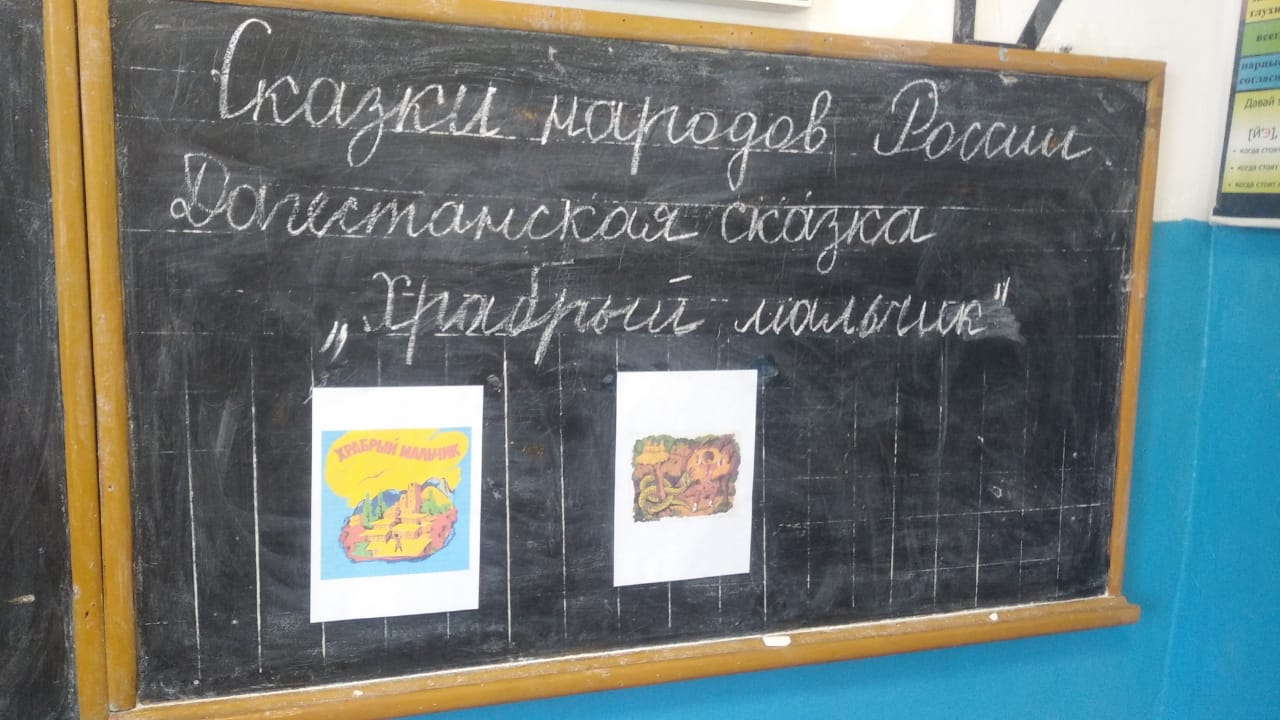 Сказки народов России
Дагестанская сказка
„Храбрый мальчик"
ХРАБРЫЙ МАЛЬЧИК
глухи
всег
парный
согласн
Давай
[Й'Э],
• когда стоят
• когда стоят
• когда стоят